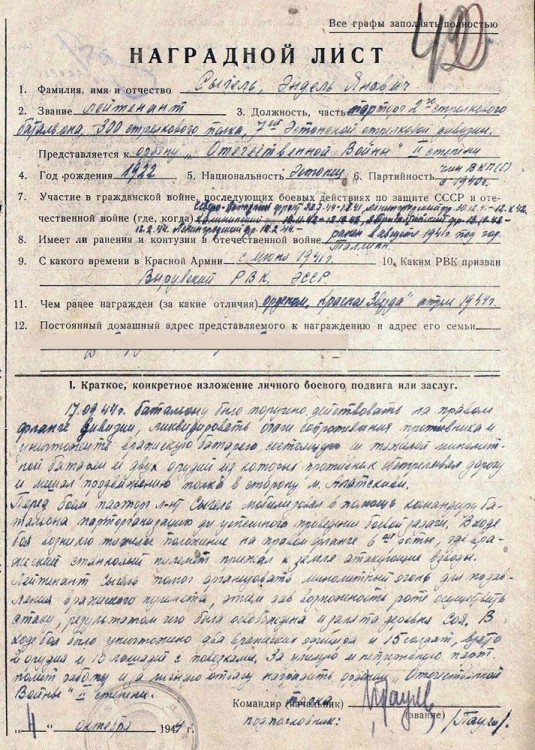 Все графы заполнять полностью
420
НАГРАДНОЙ ЛИСТ
1. Фамилия, имя и отчество Сыгель, Эндель Янович
2. Звание лейтенант 3. Должность, часть парторг 2го стрелкового
баталиона, 300 стрелкового полка, 7ой Эстонской стрелковой дивизии.
Представляется к ордену „Отечественной Войны" II степени
4. Год рождения 1922 5. Национальность Эстонец 6. Партийность член ВКП(б)
с 1940г.
7. Участие в гражданской войне, последующих боевых действиях по защите СССР и оте-
чественной войне (где, когда)
12.2.44. Ленинградский фр. 12.2.44 —
8. Имеет ли ранения и контузии в отечественной войне ранен в августе 1941г под гор.
Таллин.
9. С какого времени в Красной Армии с июля 1941г. 10. Каким РВК призван
Вируский РВК, ЭССР
11. Чем ранее награжден (за какие отличия) орденом „Красная Звезда" 1944г.
12. Постоянный домашний адрес представляемого к награждению и адрес его семьи
I. Краткое, конкретное изложение личного боевого подвига или заслуг.
17.09.44г. баталиону было поручено действовать на правом
фланге дивизии, ликвидировать очаги сопротивления противника и
уничтожить вражескую батарею состоящую из тяжелой миномет-
ной батареи и двух орудий из которых противник обстреливал дорогу
и мешал продвижению полка в сторону м.
Перед боем парторг л-нт Сыгель мобилизовал в помощь командиру ба-
талиона парторганизацию для успешного проведения боевой задачи. В ходе
боя возникло тяжелое положение на правом фланге в 6ой роты, где вра-
жеский станковый пулемет прижал к земле атакующие взводы.
Лейтенант Сыгель помог организовать минометный огонь для подав-
ления вражеского пулемета, этим дав возможность роте осуществить
атаку, результатом чего была освобождена и занята деревня В
ходе боя было уничтожено два вражеских и 15 солдат, взято
2 орудия и 18 лошадей с повозками. За умелую и парт
полит работу и, а личную отвагу наградить орденом „Отечественной
Войны" II степени.
Командир (начальник) полка
подполковник: (звание) /Паул/.
„4" октября 1944 г.